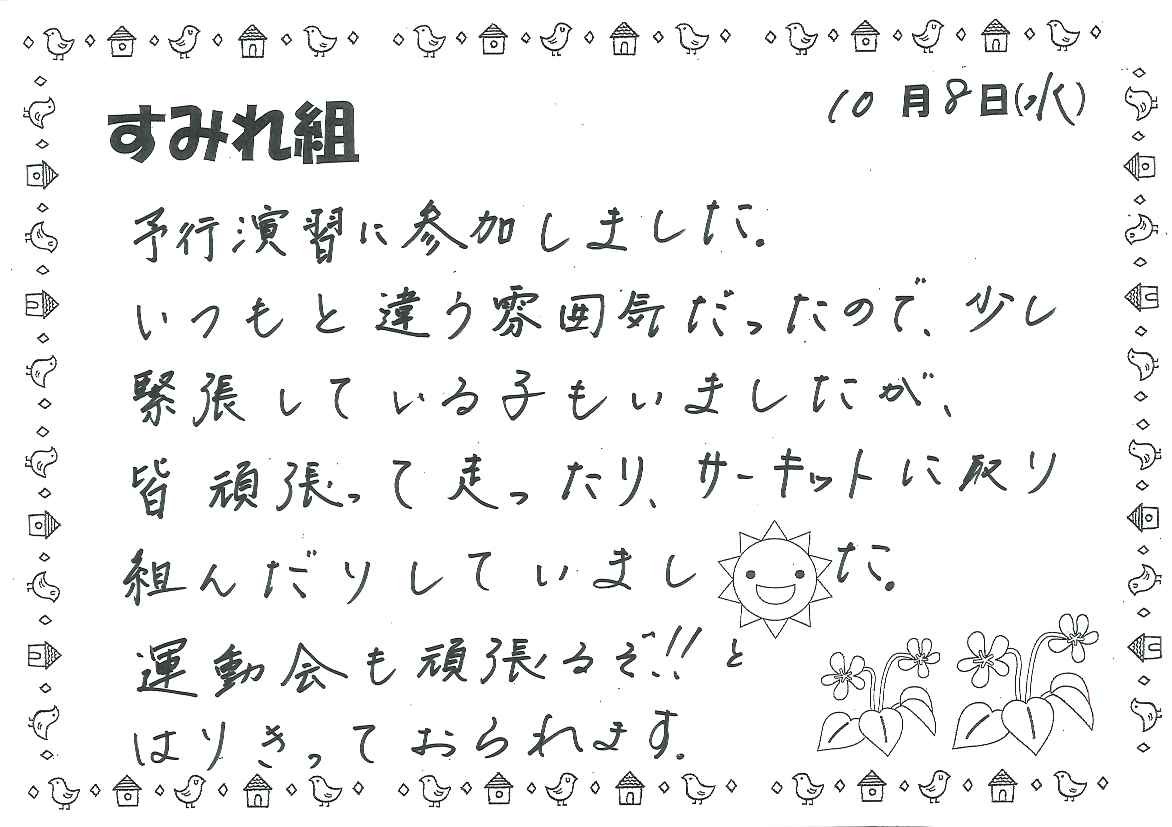 すみれ組
10月8日(水)
予行演習に参加しました。
いつもと違う雰囲気だったので、少し
緊張している子もいましたが、
皆頑張って走ったり、サーキットに取り
組んだりしていました。
運動会も頑張るぞ!!と
はりきっておられます。